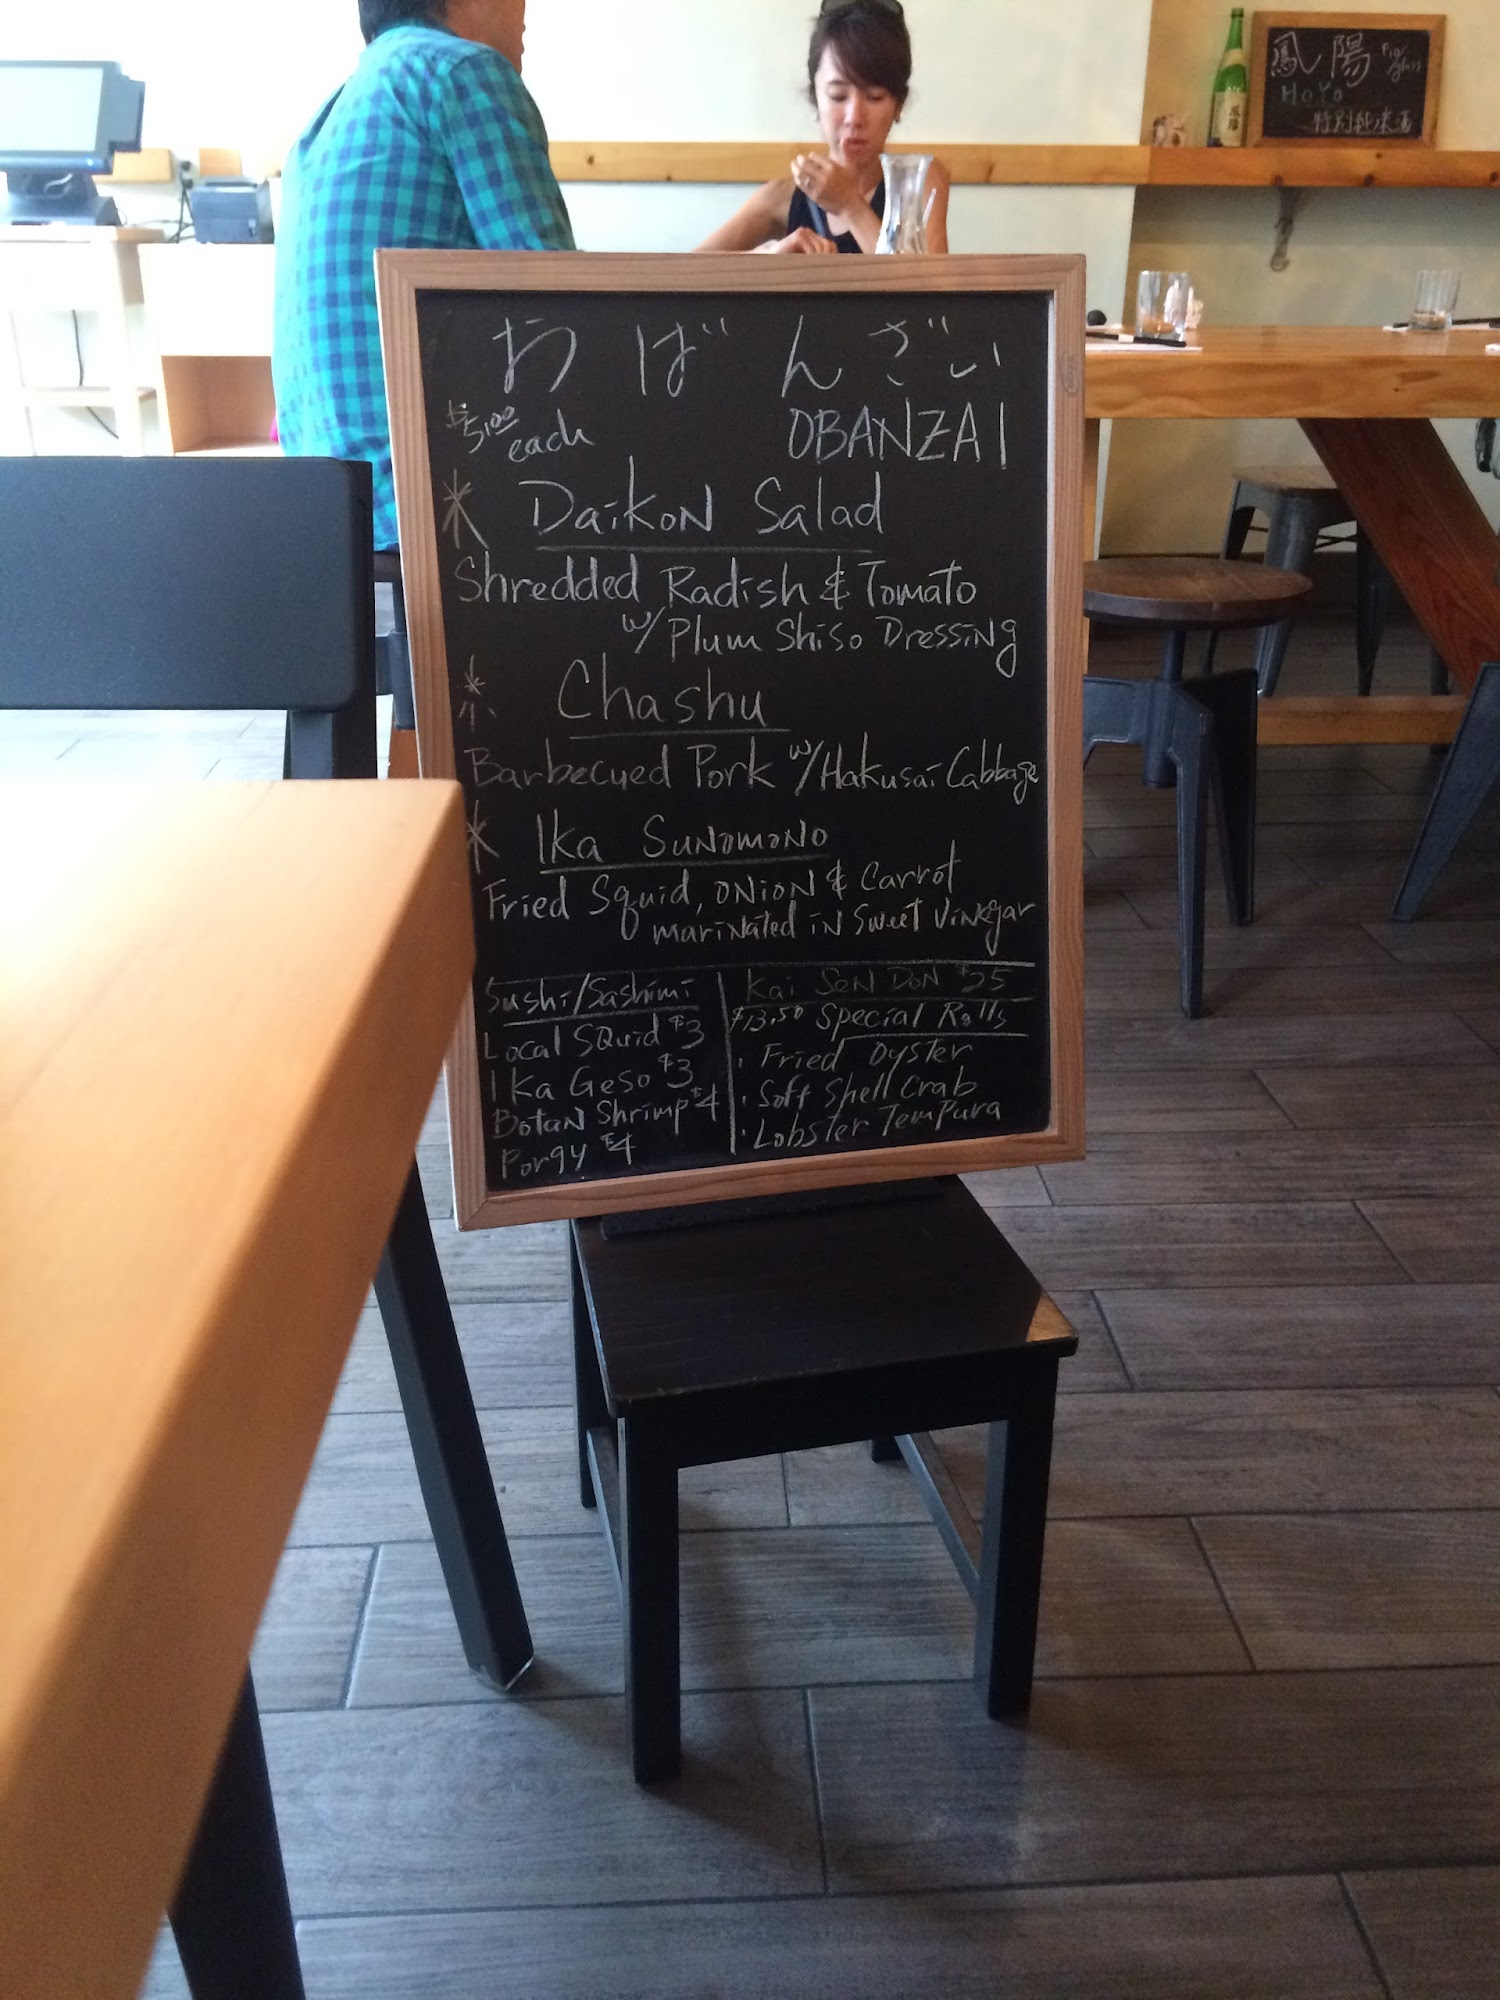 鳳陽 $10/glass
HOYO
特別純米酒
おばんざい
$5.00 each OBANZAI
* Daikon Salad
Shredded Radish & Tomato
w/ Plum Shiso Dressing
* Chashu
Barbecued Pork w/ Hakusai Cabbage
* Ika Sunomono
Fried Squid, Onion & Carrot
marinated in Sweet Vinegar
Sushi/Sashimi
Local Squid $3
Ika Geso $3
Botan Shrimp $4
Porgy $4
Kai Sen Don $25
$13.50 Special Rolls
· Fried Oyster
· Soft Shell Crab
· Lobster Tempura